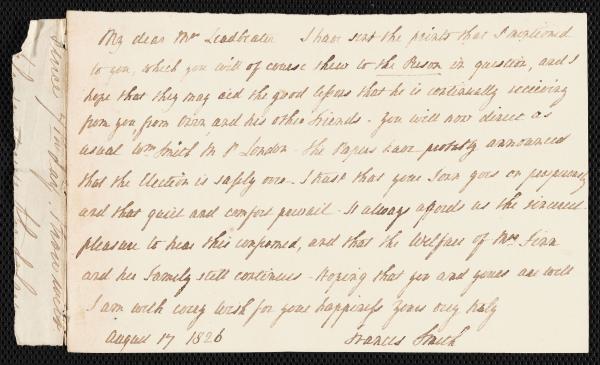 My dear Mrs Leadbeater I have sent the prints that I mentioned
to you, which you will of course shew to the Person in question, and I
hope that they may aid the good lessons that he is continually receiving
from you, from Orin, and his other friends - You will now direct as
usual Wm Smith M P London - The Papers have probably announced
that the Election is safely over - I trust that your Son goes on prosperously
and that quiet and comfort prevail - It always affords us the sincerest
pleasure to hear this confirmed, and that the Welfare of Mrs Finn
and her Family still continues - Hoping that you and yours are well
I am with every wish for your happiness yours very truly
August 17 1826 Frances Smith